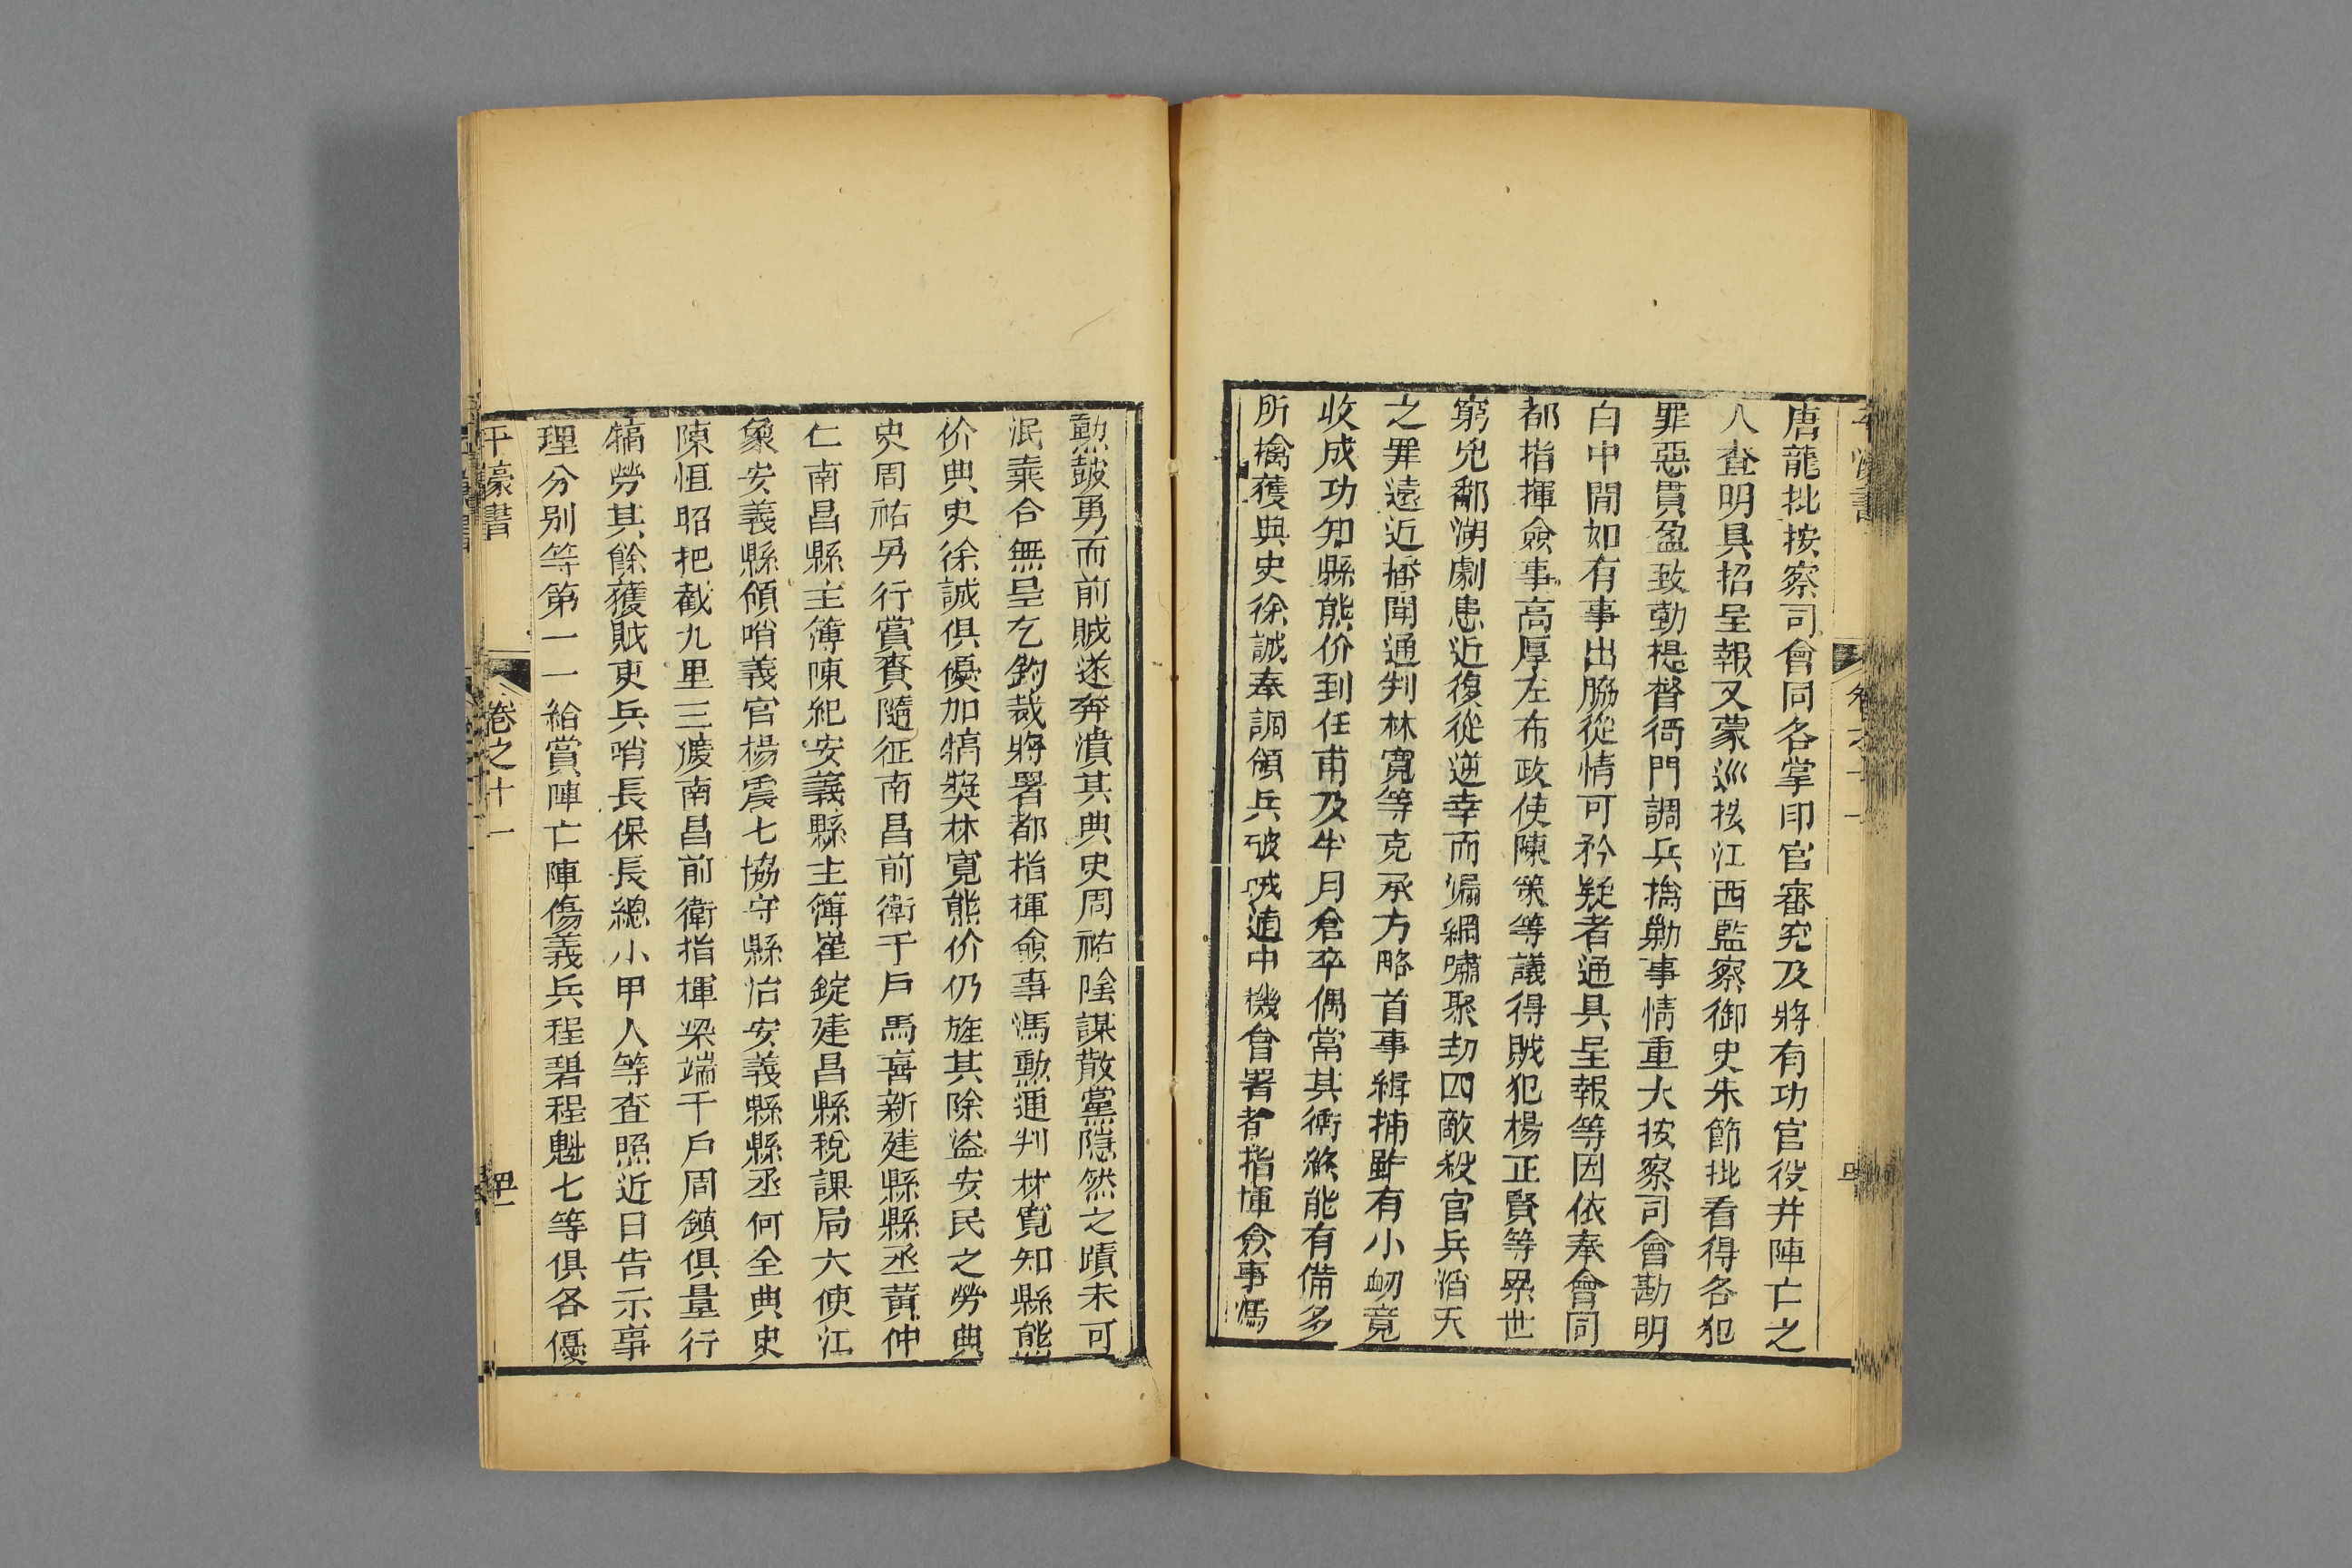 唐龍批按察司會同各掌印官審究及將有功官役并陣亡之
人查明具招呈報又蒙巡按江西監察御史朱節批看得各犯
罪惡貫盈致動提督衙門調兵擒勦事情重大按察司會勘明
白中間如有事出脇從情可矜疑者通具呈報等因依奉會同
都指揮僉事高厚左布政使陳策等議得賊犯楊正賢等累世
窮兇鄱湖劇患近復從逆幸而漏網嘯聚刼囚敵殺官兵滔天
之罪遠近播聞通判林寛等克承方略首事緝捕雖有小衂竟
收成功知縣熊价到任甫及半月倉卒偶當其衝然能有備多
所擒獲典史徐誠奉調領兵破賊適中機會署者指揮僉事馮
勲皷勇而前賊遂奔潰其典史周祐陰謀散黨隱然之蹟未可
泯棄合無呈乞鈞裁將署都指揮僉事馮勲通判林寛知縣熊
价典史徐誠俱優加犒奬林寛熊价仍旌其除盜安民之勞典
史周祐另行賞賚隨征南昌前衛千戶馬喜新建縣縣丞黄仲
仁南昌縣主簿陳紀安義縣主簿崔錠建昌縣稅課局大使江
象安義縣領哨義官楊震七協守縣治安義縣縣丞何全典史
陳恒昭把截九里三渡南昌前衛指揮梁端千戶周鎮俱量行
犒勞其餘獲賊吏兵哨長保長總小甲人等查照近日告示事
理分别等第一一給賞陣亡陣傷義兵程碧程魁七等俱各優
平濠書
卷之十一